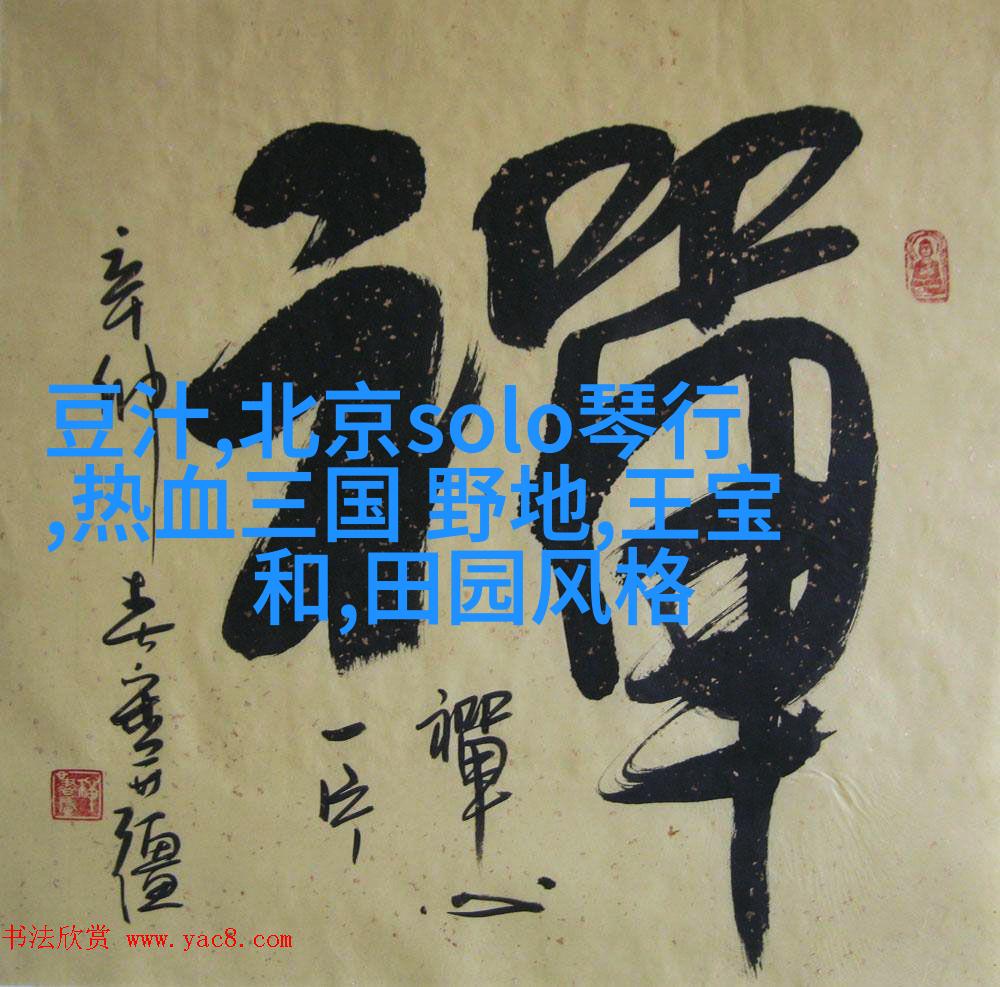 禪
豆汁,北京solo琴行
,热血三国 野地,王宝
和,田园风格
禪心
一片
辛卯春
书法欣赏 www.yac8.com